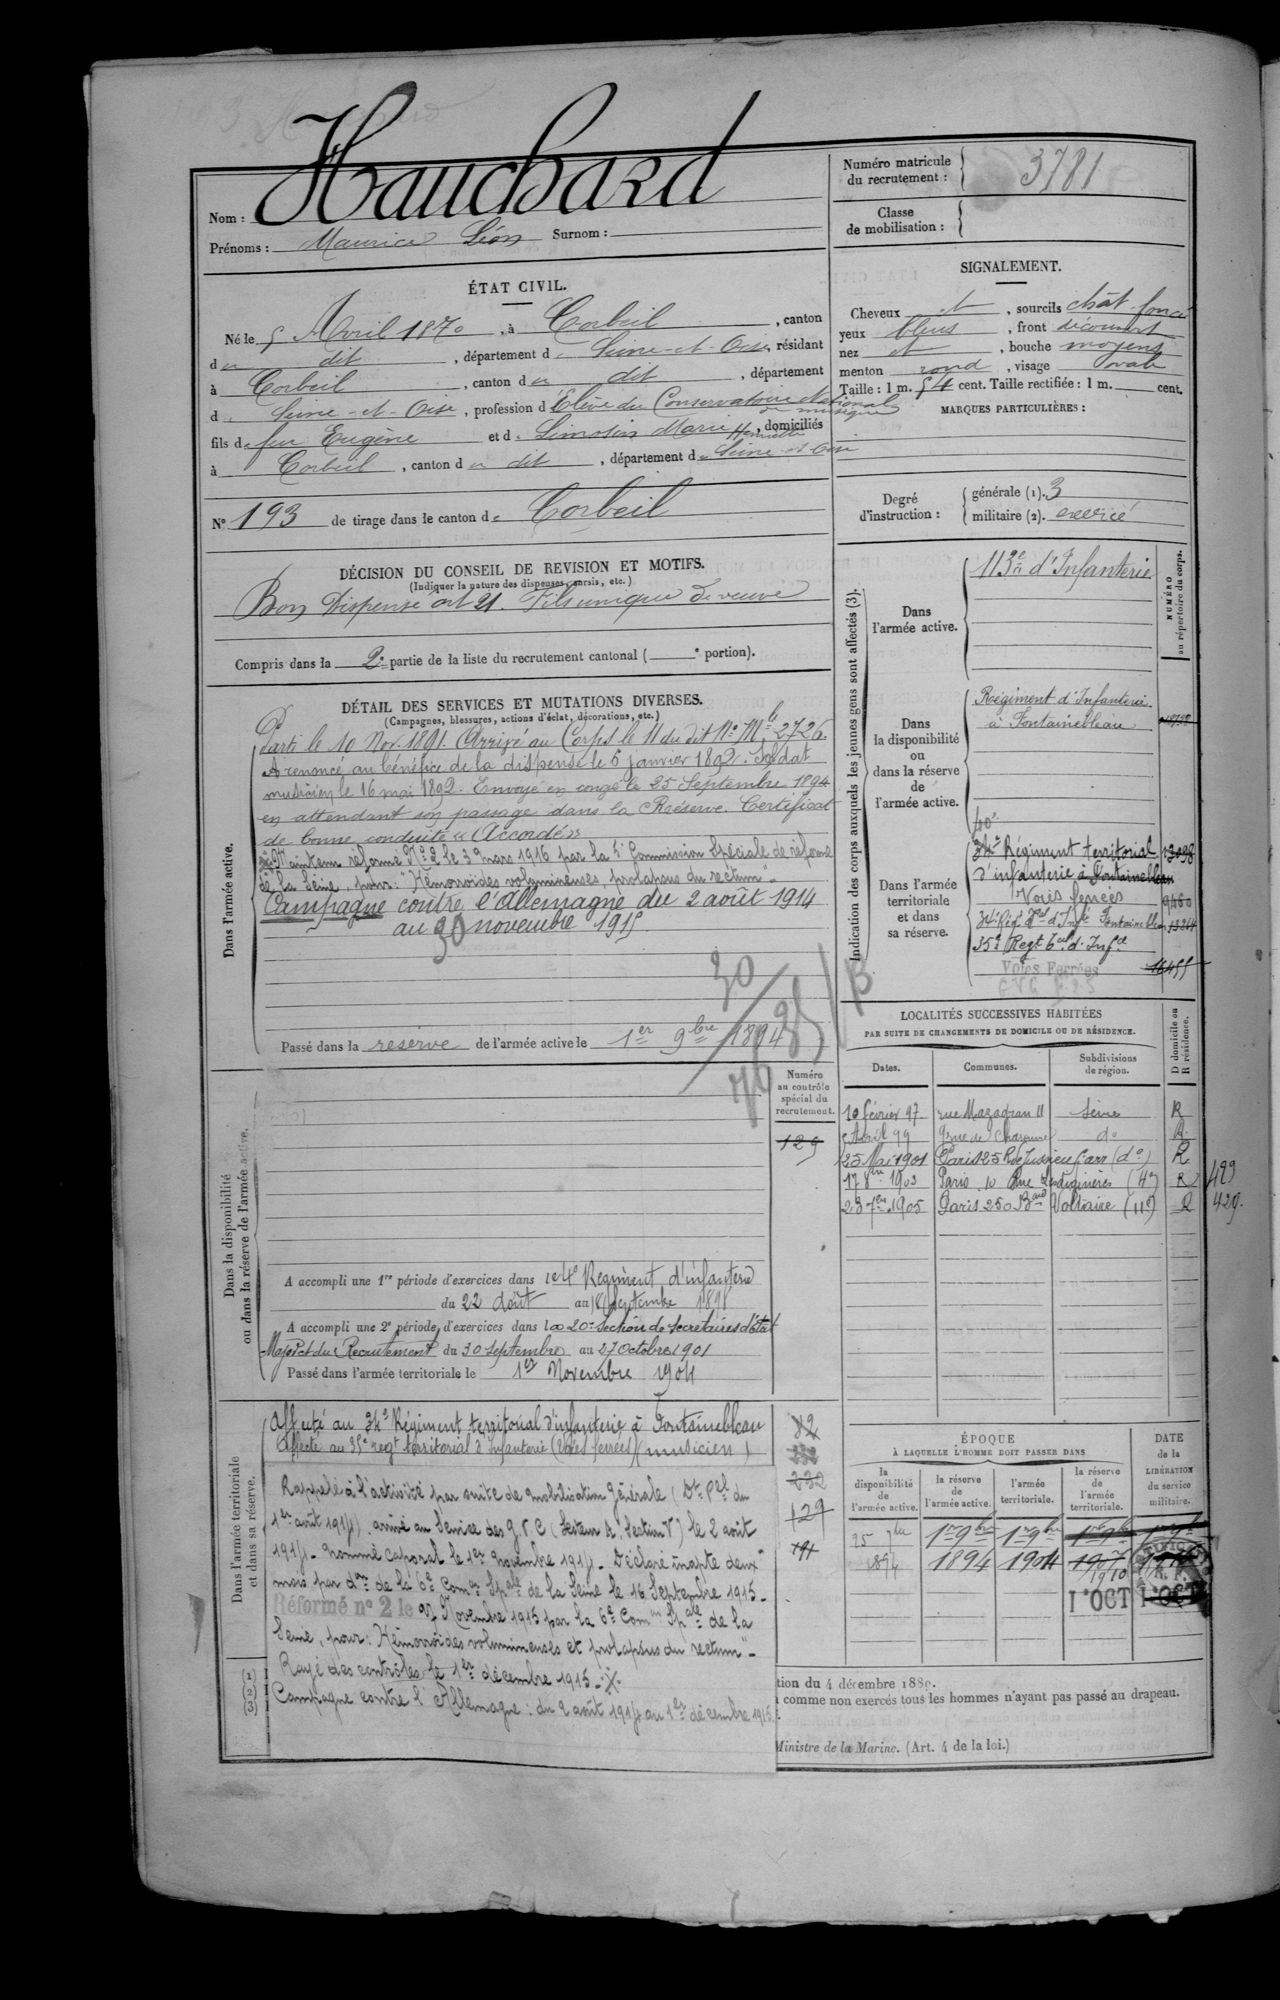 Hauchard
Nom :
Prénoms : Maurice Léon Surnom :
ÉTAT CIVIL.
Né le 5 Avril 1870, à Corbeil, canton
d u dit, département d e Seine-et-Oise, résidant
à Corbeil, canton d u dit, département
d e Seine-et-Oise, profession d' Élève du Conservatoire National
de musique
fils de feu Eugène et de Limosin Marie Henriette, domiciliés
à Corbeil, canton d u dit, département d e Seine-et-Oise
N° 193 de tirage dans le canton de Corbeil
DÉCISION DU CONSEIL DE REVISION ET MOTIFS.
(Indiquer la nature des dispenses, sursis, etc.)
Bon Dispensé art 21. Fils unique de veuve
Compris dans la 2e partie de la liste du recrutement cantonal ( e portion).
DÉTAIL DES SERVICES ET MUTATIONS DIVERSES.
(Campagnes, blessures, actions d'éclat, décorations, etc.)
Dans l'armée active.
Parti le 10 Nov. 1891. Arrivé au Corps le 11 du dit N° Mle 2726.
A renoncé au bénéfice de la dispense le 6 janvier 1892. Soldat
musicien le 16 mai 1892. Envoyé en congé le 25 Septembre 1894
en attendant son passage dans la Réserve. Certificat
de bonne conduite « Accordé »
Maintenu réformé N° 2 le 3 mars 1916 par la Commission Spéciale de réforme
de la Seine, pour : "Hémorroïdes volumineuses, prolapsus du rectum".
Campagne contre l'Allemagne du 2 août 1914
au 30 novembre 1915
Passé dans la réserve de l'armée active le 1er 9bre 1894
Numéro
au contrôle
spécial du
recrutement.
129
Dans la disponibilité
ou dans la réserve de l'armée active.
A accompli une 1re période d'exercices dans le 4e Régiment d'infanterie
du 22 août au 18 Septembre 1898
A accompli une 2e période d'exercices dans la 20e Section de Secrétaires d'état
Major et du Recrutement du 30 septembre au 27 octobre 1901
Passé dans l'armée territoriale le 1er Novembre 1904
Dans l'armée territoriale
et dans sa réserve.
Affecté au 34e Régiment territorial d'infanterie à Fontainebleau
Affecté au 35e regt territorial d'Infanterie (Voies ferrées) (musicien)
232
129
Rappelé à l'activité par suite de mobilisation Générale (Dt Pel du
1er août 1914) arrivé au Service des G.V.C (Secteur le 2 août
1914. Nommé caporal le 1er novembre 1914. Déclaré inapte deux
mois par don de la 6e Comon Spale de la Seine le 16 Septembre 1915.
Réformé n° 2 le Novembre 1915 par la 6e Comon Spale de la
Seine, pour : Hémorroïdes volumineuses et prolapsus du rectum".
Rayé des contrôles le 1er décembre 1915.
Campagne contre l'Allemagne : du 2 août 1914 au 1er décembre 1915.
(1)
(2)
(3)
Numéro matricule
du recrutement : 3781
Classe
de mobilisation :
SIGNALEMENT.
Cheveux et, sourcils chât. foncé
yeux bleus, front découvert
nez et, bouche moyens
menton rond, visage ovale
Taille : 1 m. 54 cent. Taille rectifiée : 1 m. cent.
MARQUES PARTICULIÈRES :
Degré
d'instruction :
générale (1). 3
militaire (2). exercé
Indication des corps auxquels les jeunes gens sont affectés (3).
NUMÉRO
au répertoire du corps.
Dans
l'armée active.
113e d'Infanterie
Dans
la disponibilité
ou
dans la réserve
de
l'armée active.
Régiment d'Infanterie
à Fontainebleau
Dans l'armée
territoriale
et dans
sa réserve.
40e
34e Régiment territorial 13098
d'infanterie à Fontainebleau
Voies ferrées 9460
34e Régt Tal d'Infie Fontainebleau 13264
35e Regt Tal d'Infie
Voies Ferrées 16455
LOCALITÉS SUCCESSIVES HABITÉES
PAR SUITE DE CHANGEMENTS DE DOMICILE OU DE RÉSIDENCE.
D domicile ou
R résidence.
Dates. Communes. Subdivisions
de région.
10 février 97 rue Mazagran 11 Seine R
Avril 99 rue de Charonne do R
25 Mai 1901 Paris 25 Rue Jussieu 5 arr (do) R
17 8bre 1903 Paris, 10 Rue Lesdiguières (4e) R 429
23 7bre 1905 Paris 250 Bard Voltaire (11e) R 429.
ÉPOQUE
À LAQUELLE L'HOMME DOIT PASSER DANS
DATE
de la
LIBÉRATION
du service
militaire.
la
disponibilité
de
l'armée active.
la réserve
de
l'armée active.
l'armée
territoriale.
la réserve
de
l'armée
territoriale.
25 7bre 1er 9bre 1er 9bre 1er 9bre
1894 1894 1904 1910
1° OCT 1° OCT
tion du 4 décembre 1889.
comme non exercés tous les hommes n'ayant pas passé au drapeau.
Ministre de la Marine. (Art. 4 de la loi.)